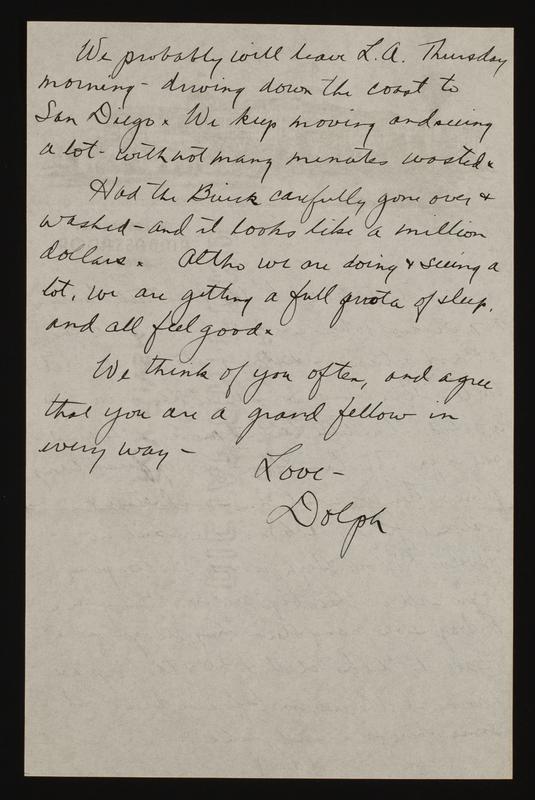 We probably will leave L.A. Thursday
morning - driving down the coast to
San Diego. We keep moving and seeing
a lot - with not many minutes wasted.
Had the Buick carefully gone over &
washed - and it looks like a million
dollars. Altho we are doing & seeing a
lot, we are getting a full quota of sleep,
and all feel good.
We think of you often, and agree
that you are a grand fellow in
every way -
Love -
Dolph